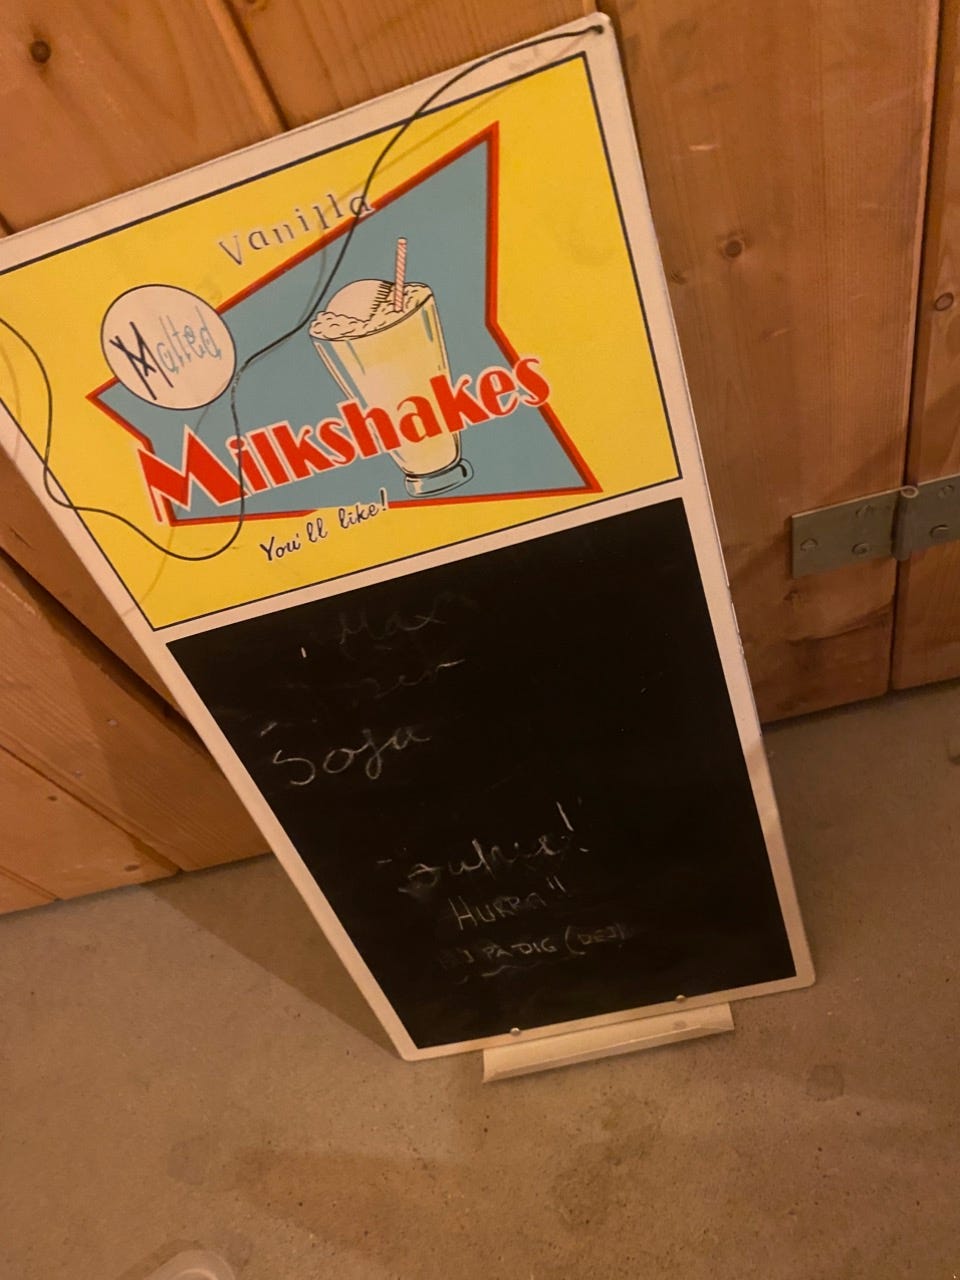 Vanilla
Malted
Milkshakes
You'll like!
Max
Soja
HURRA!!
PÅ DIG (DEJ)